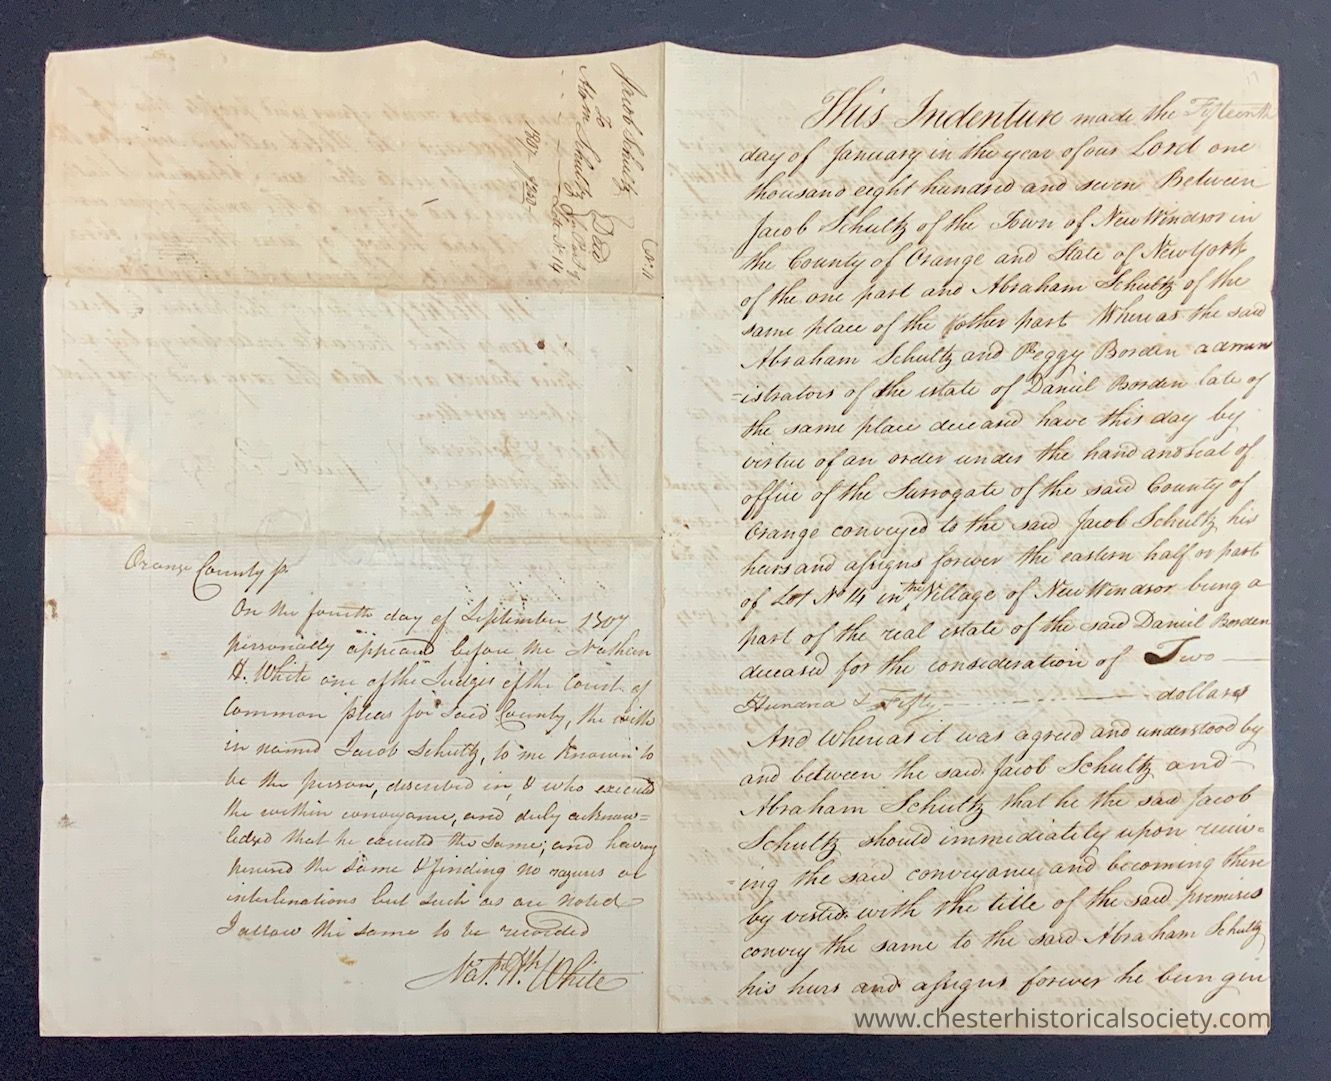 Jacob Schultz
to
Abrm Schultz
Deed
for Part of
Lot No 14
1807
Orange County ss.
On the fourth day of September 1807
personally appeared before me Nathan
H. White one of the Judges of the Court of
Common pleas for Said County, the with
in named Jacob Schultz, to me Known to
be the person, described in, & who executed
the within conveyance, and duly acknow=
ledged that he executed the same, and having
perused the same & finding no razures or
interlineations but such as are noted
I allow the same to be recorded
Nathl. H. White
This Indenture made the Fifteenth
day of January in the year of our Lord one
thousand eight hundred and seven Between
Jacob Schultz of the Town of New Windsor in
the County of Orange and State of New York
of the one part and Abraham Schultz of the
same place of the other part Whereas the said
Abraham Schultz and Peggy Borden admin
=istrators of the estate of Daniel Borden late of
the same place deceased have this day by
virtue of an order under the hand and seal of
office of the Surrogate of the said County of
Orange conveyed to the said Jacob Schultz his
heirs and assigns forever the eastern half or part
of Lot No 14 in the Village of New Windsor being a
part of the real estate of the said Daniel Borden
deceased for the consideration of Two
Hundred & Fifty dollars
And Whereas it was agreed and understood by
and between the said Jacob Schultz and
Abraham Schultz that he the said Jacob
Schultz should immediately upon receiv=
=ing the said conveyance and becoming there
by vested with the title of the said premises
convey the same to the said Abraham Schultz
his heirs and assigns forever he being in
www.chesterhistoricalsociety.com